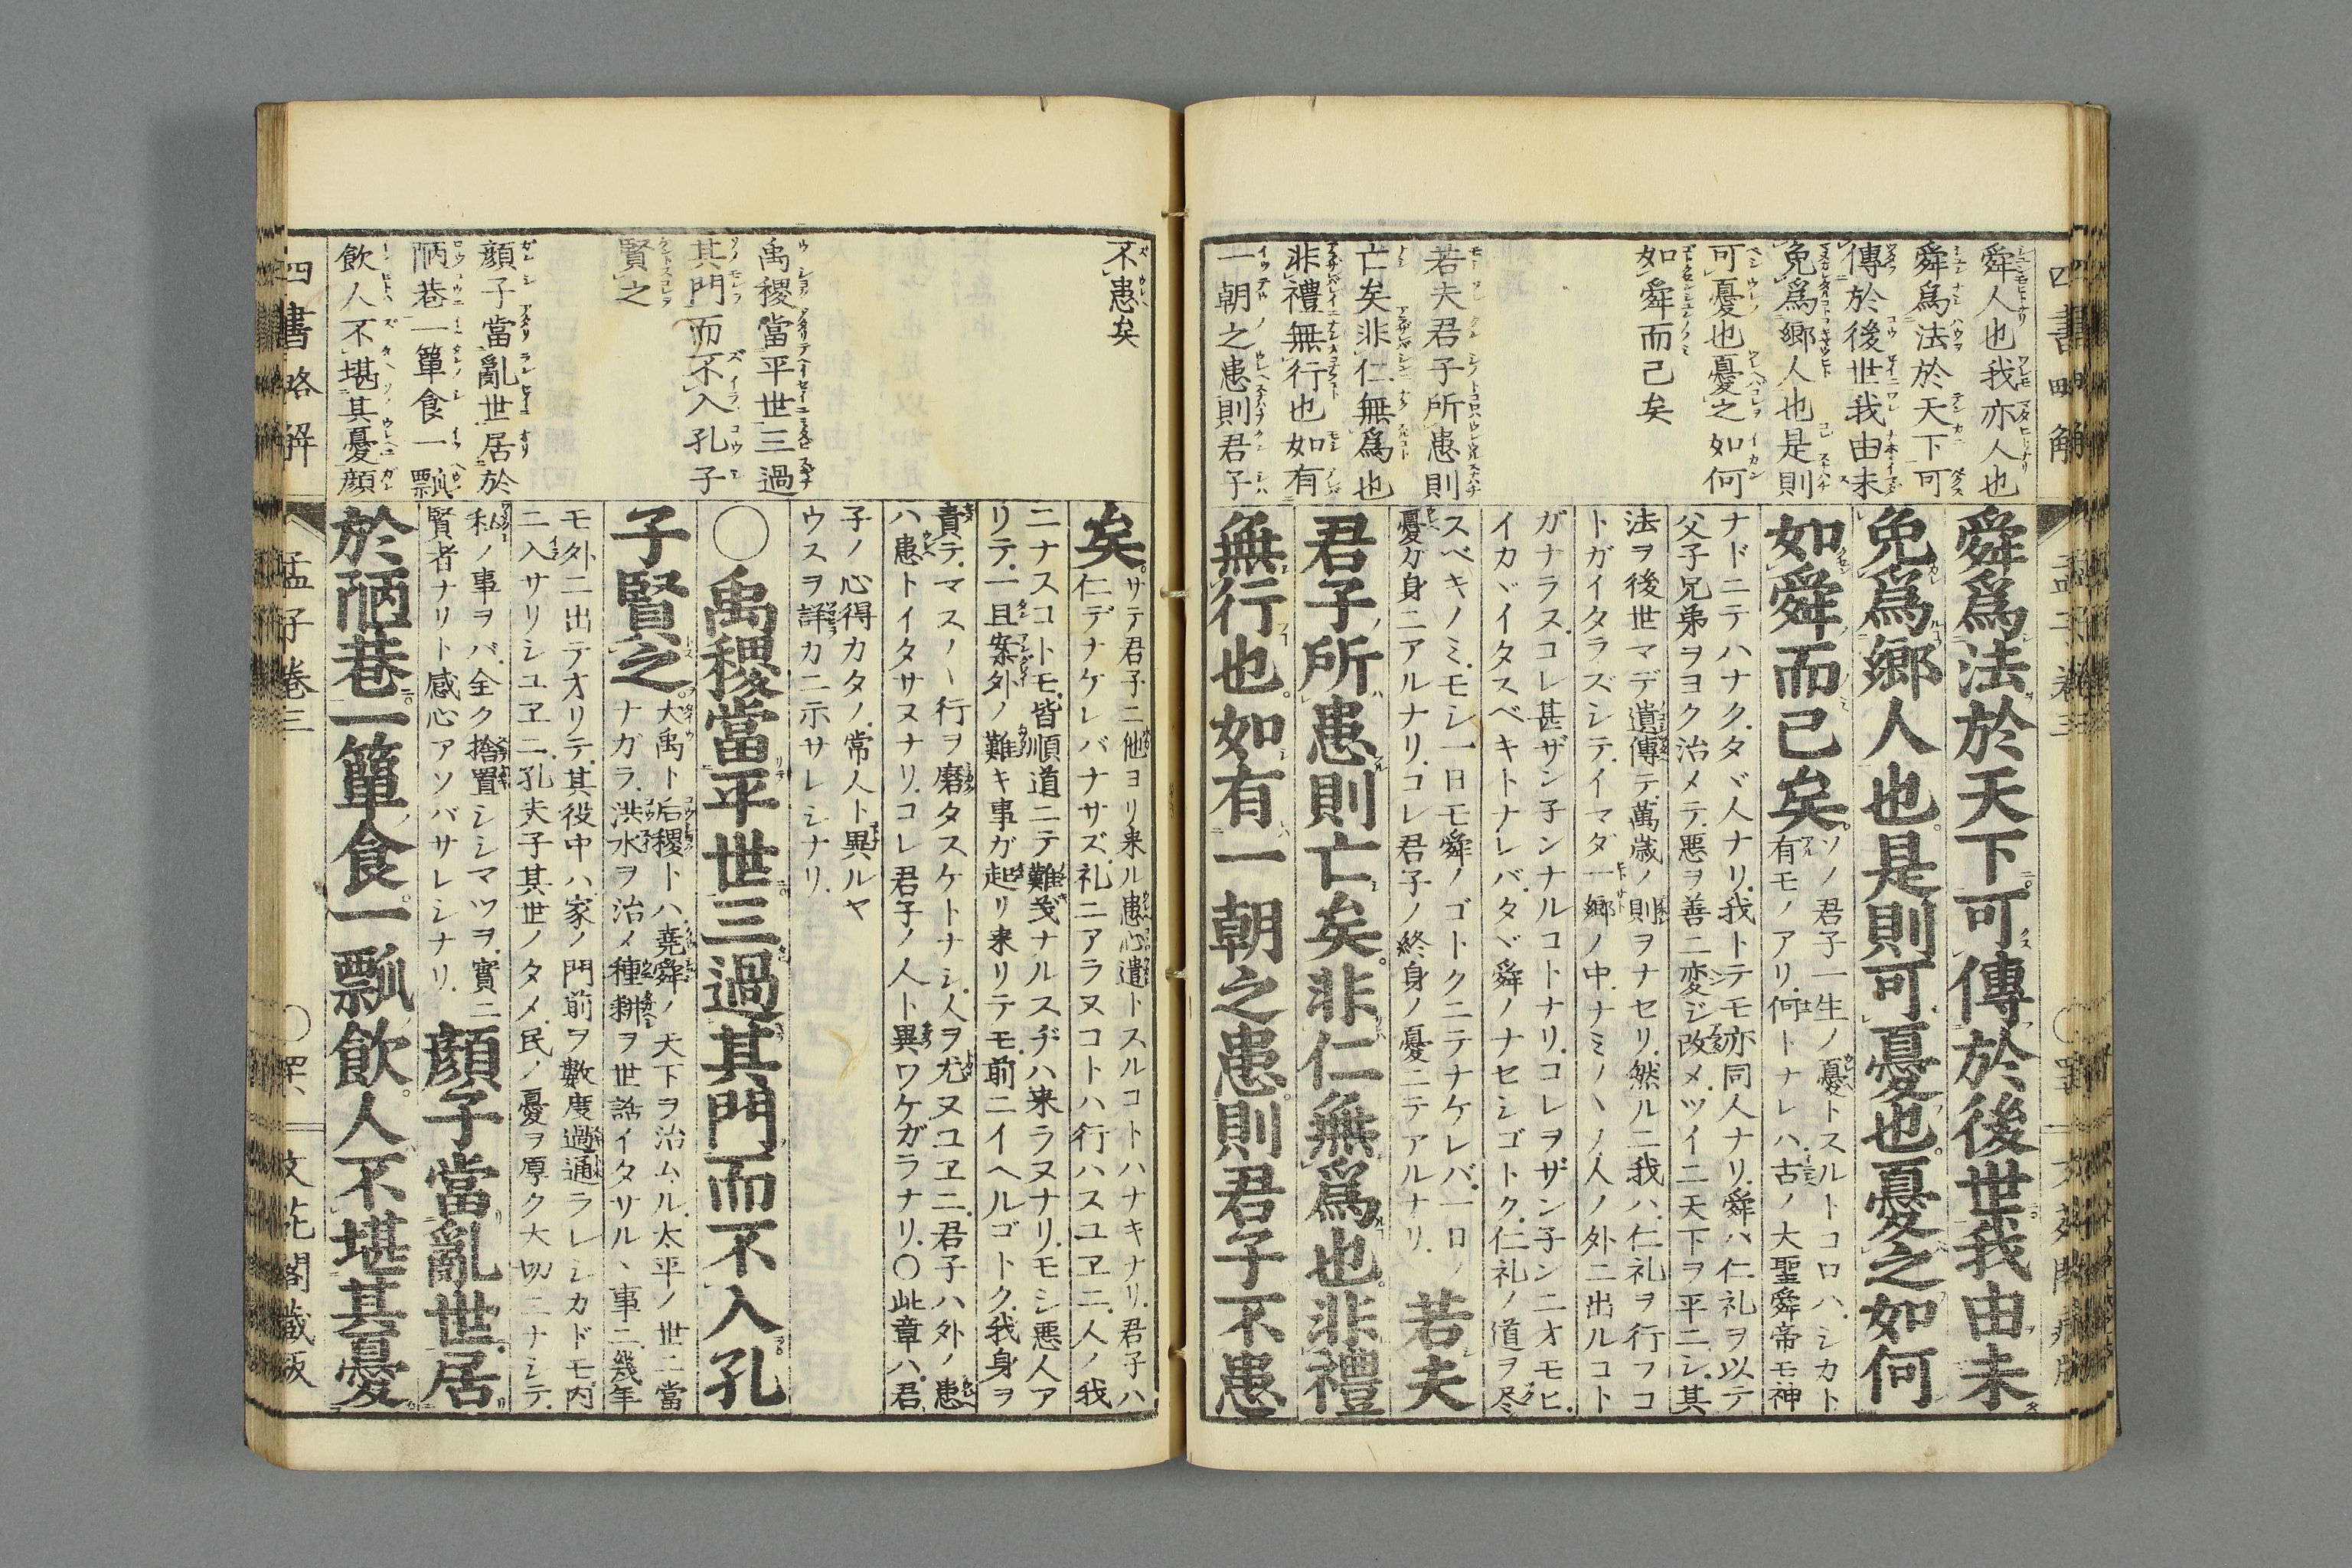 舜人也我亦人也
舜爲法於天下可
傳於後世我由未
免爲鄉人也是則
可憂也憂之如何
如舜而已矣
若夫君子所患則
亡矣非仁無爲也
非禮無行也如有
一朝之患則君子
舜爲法於天下可傳於後世我由未
免爲鄉人也是則可憂也憂之如何
如舜而已矣
ソノ君子一生ノ憂トスルトコロハ シカト
有モノアリ 何トナレハ 古ノ大聖舜帝モ神
ナドニテハナク タヾ人ナリ 我トテモ亦同人ナリ 舜ハ仁礼ヲ以テ
父子兄弟ヲヨク治メテ 悪ヲ善ニ変ジ改メ ツイニ天下ヲ平ニシ 其
法ヲ後世マデ遺傳テ 萬歳ノ則ヲナセリ 然ルニ我ハ仁礼ヲ行フコ
トガイタラズシテ イマダ一郷ノ中 ナミ〳〵ノ人ノ外ニ出ルコト
ガナラス コレ甚ザン子ンナルコトナリ コレヲザン子ンニオモヒ
イカヾイタスベキトナレバ タヾ舜ノナセシゴトク 仁礼ノ道ヲ尽
スベキノミ モシ一日モ舜ノゴトクニテナケレバ 一日ノ
憂ガ身ニアルナリ コレ君子ノ終身ノ憂ニテアルナリ
若夫
君子所患則亡矣非仁無爲也非禮
無行也如有一朝之患則君子不患
四書略解
孟子卷三
不患矣
禹稷當平世三過
其門而不入孔子
賢之
顔子當亂世居於
陋巷一簞食一瓢
飲人不堪其憂顔
矣
サテ君子ニ他ヨリ来ル患心遣トスルコトハナキナリ 君子ハ
仁デナケレバナサズ 礼ニアラヌコトハ行ハスユヱニ 人ノ我
ニナスコトモ 皆順道ニテ難義ナルスヂハ来ラヌナリ モシ悪人ア
リテ 一旦案外ノ難キ事ガ起リ来リテモ 前ニイヘルゴトク 我身ヲ
責テ マス〳〵行ヲ磨タスケトナシ 人ヲ尤ヌユヱニ 君子ハ外ノ患
ハ患トイタサヌナリ コレ君子ノ人ト異ワケガラナリ ○此章ハ君
子ノ心得カタノ 常人ト異ルヤ
ウスヲ 詳カニ示サレシナリ
○禹稷當平世三過其門而不入孔
子賢之
大禹ト后稷トハ 堯舜ノ天下ヲ治ムル 太平ノ世ニ當
ナガラ 洪水ヲ治メ種耕ヲ世話イタサルヽ事ニ 幾年
モ外ニ出テオリテ 其役中ハ家ノ門前ヲ 數度過通ラレシカドモ 内
ニ入サリシユヱニ 孔夫子其世ノタメ 民ノ憂ヲ厚ク大切ニナシテ
私ノ事ヲバ 全ク捨置シシマツヲ 實ニ
賢者ナリト感心アソバサレシナリ
顔子當亂世居
於陋巷一簞食一瓢飲人不堪其憂
四書略解
孟子卷三
文花閣藏版